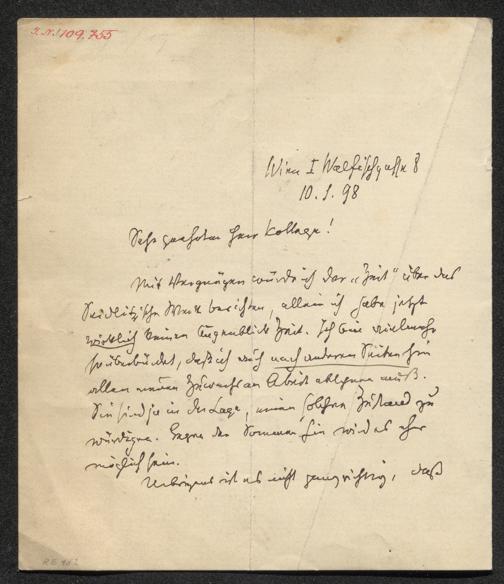 I.N. 109.755
Wien I Walfischgasse 8
10. 1. 98
Sehr geehrter Herr Kollege!
Mit Vergnügen würde ich der „Zeit“ über das
Seidlitzsche Werk berichten, allein ich habe jetzt
wirklich keinen Augenblick Zeit. Ich bin vielmehr
so überbürdet, daß ich auch nach anderen Seiten hin
allen neuen Zuwachs an Arbeit ablehnen muß.
Sie sind ja in der Lage, einen solchen Zustand zu
würdigen. Gegen den Sommer hin wird es eher
möglich sein.
Uebrigens ist es nicht ganz richtig, daß